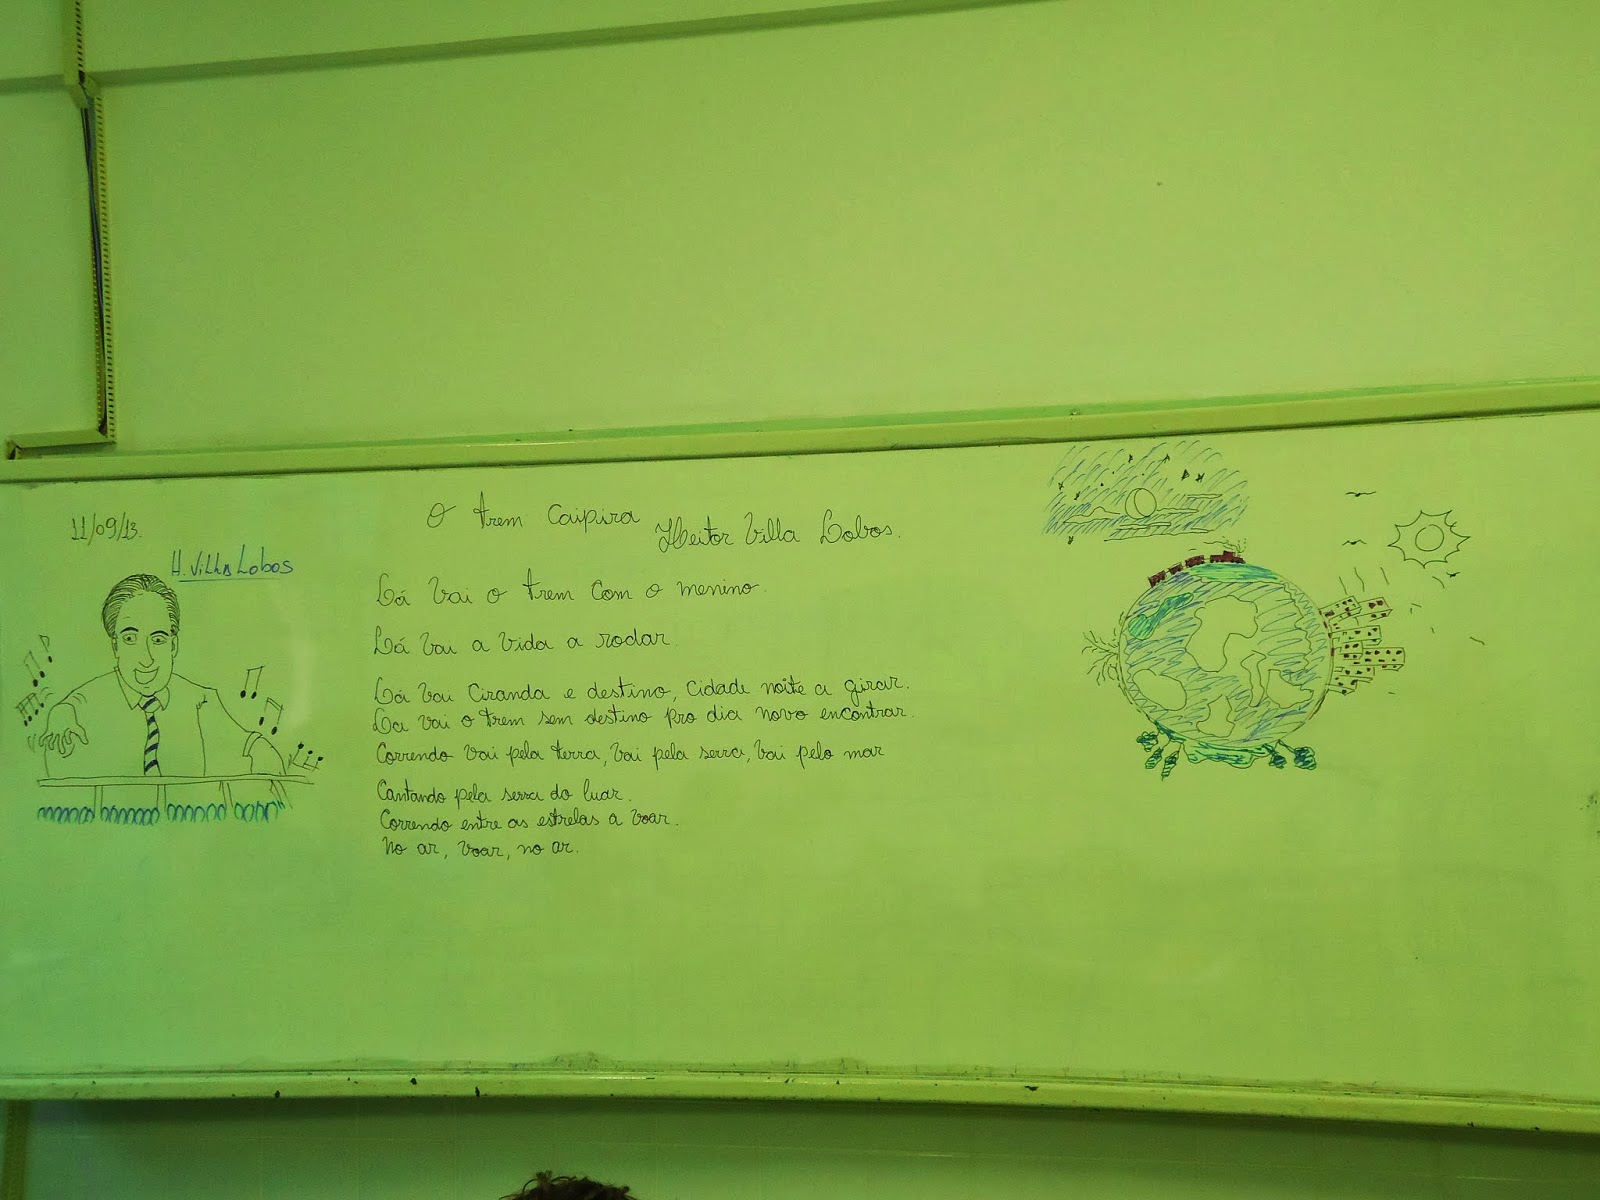 11/09/13.
H. Villa Lobos
O trem Caipira
Heitor Villa Lobos.
Lá vai o trem com o menino.
Lá vai a vida a rodar.
Lá vai ciranda e destino, cidade noite a girar.
La vai o trem sem destino pro dia novo encontrar.
Correndo vai pela terra, vai pela serra, vai pelo mar
Cantando pela serra do luar.
Correndo entre as estrelas a voar.
No ar, voar, no ar.